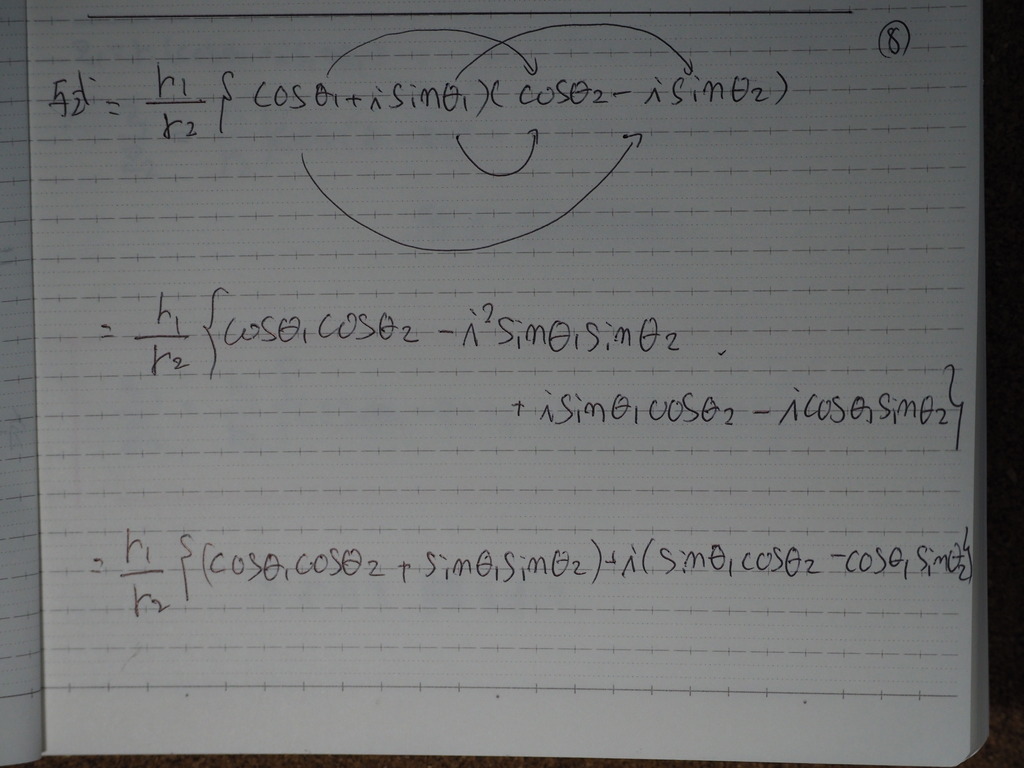 ⑧
与式 = r₁/r₂ { cosθ₁ + i sinθ₁)( cosθ₂ − i sinθ₂)
= r₁/r₂ { cosθ₁ cosθ₂ − i² sinθ₁ sinθ₂
+ i sinθ₁ cosθ₂ − i cosθ₁ sinθ₂ }
= r₁/r₂ { (cosθ₁ cosθ₂ + sinθ₁ sinθ₂) + i (sinθ₁ cosθ₂ − cosθ₁ sinθ₂) }